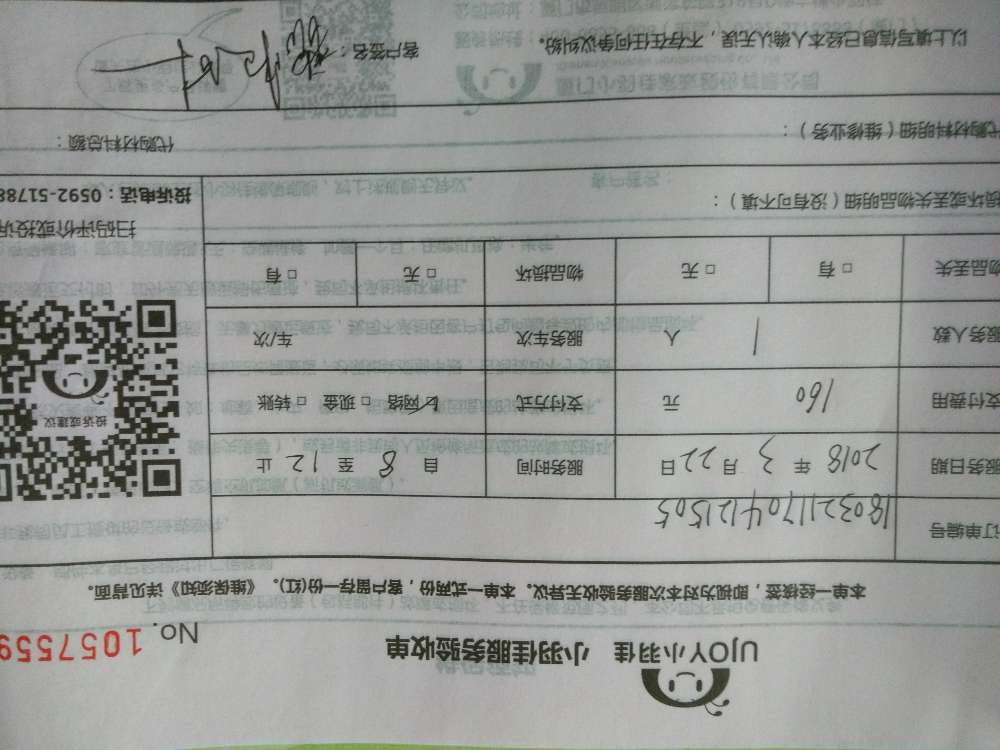 UJOY小羽佳 小羽佳服务验收单
No. 1057559
本单一经核签，即视为对本次服务验收无异议。本单一式两份，客户留存一份(红)。《维保须知》详见背面。
订单编号 18032211704121505
服务日期 2018 年 3 月 22 日 服务时间 自 8 至 12 止
支付费用 160 元 支付方式 ☑网络 □现金 □转账
服务人数 1 人 服务车次 车/次
物品丢失 □有 □无 物品损坏 □无 □有
投诉或建议
扫码评价或投诉
投诉电话：0592-51788
损坏或丢失物品明细（没有可不填）：
代购材料明细（维修业务）： 代购材料总额：
以上填写信息已经本人确认无误，不存在任何争议纠纷。 客户签名：